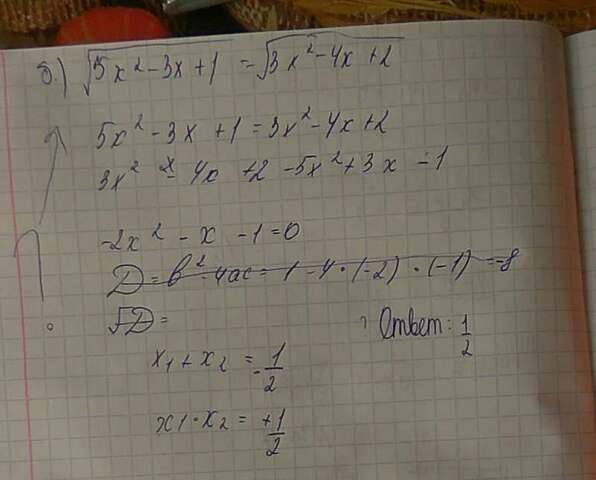 б.) √5x² - 3x + 1 = √3x² - 4x + 2
5x² - 3x + 1 = 3x² - 4x + 2
3x² - 4x + 2 - 5x² + 3x - 1
-2x² - x - 1 = 0
D = b² - 4ac = 1 - 4 · (-2) · (-1) = -8
√D =
Ответ: 1/2
x₁ + x₂ = -1/2
x₁ · x₂ = +1/2